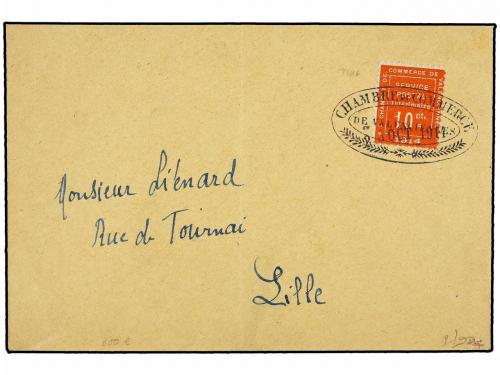 CHAMBRE DE COMMERCE
DE VALENCIENNES
OCT 1914
DE COMMERCE DE VAL
SERVICE
POSTAL
10 ct.
1914
Monsieur Liénard
Rue de Tournai
Lille
600 €